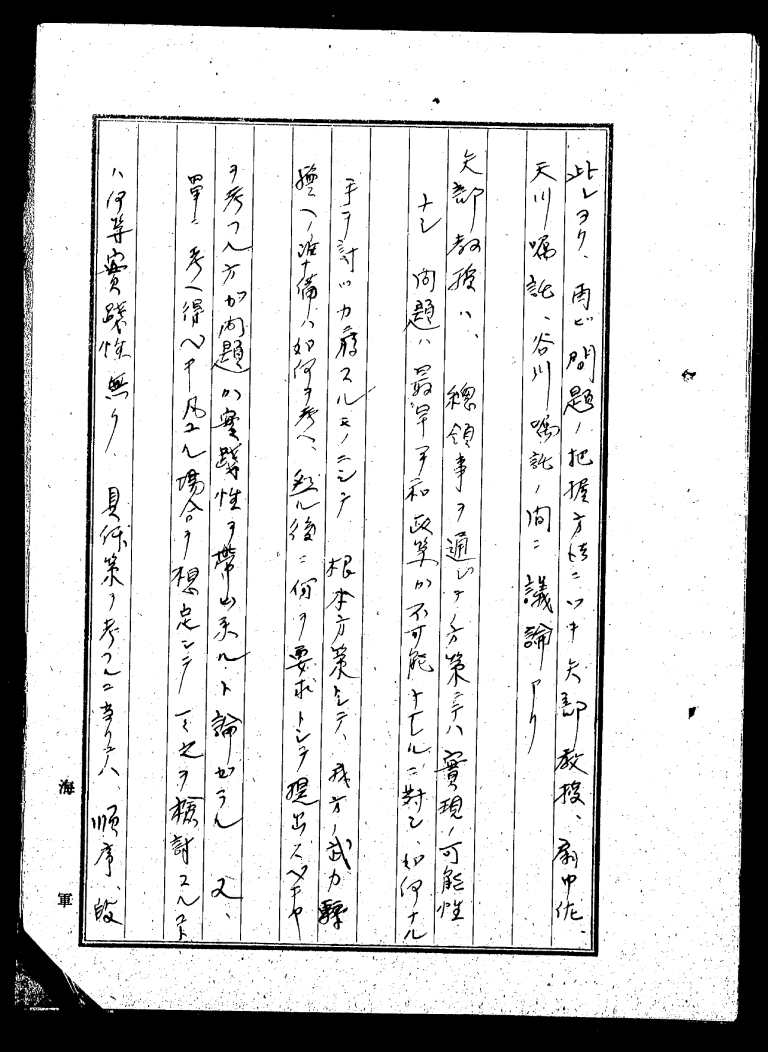 此レヨリ、再ビ問題ノ把握方法ニツキ矢部教授、扇中佐、
天川嘱託、谷川嘱託ノ間ニ議論アリ
矢部教授ハ、總領事ヲ通ジテノ方策ニテハ實現ノ可能性
ナシ 問題ハ最早平和政策ガ不可能ナルニ對シ、如何ナル
手ヲ討ツカニ存スルモノニシテ 根本方策トシテ、我方ノ武力
ヘノ準備ハ如何ヲ考ヘ、然ル後ニ何ヲ要求トシテ提出スベキヤ
ヲ考フル方ガ問題ガ實踐性ヲ帶ビ來ルト論ゼラル 又、
單ニ考ヘ得ベキ凡ユル場合ヲ想定シテ一々之ヲ檢討スルコト
ハ何等實踐性無ク、具体策ヲ考フルニ當リテハ、順序、段
海軍